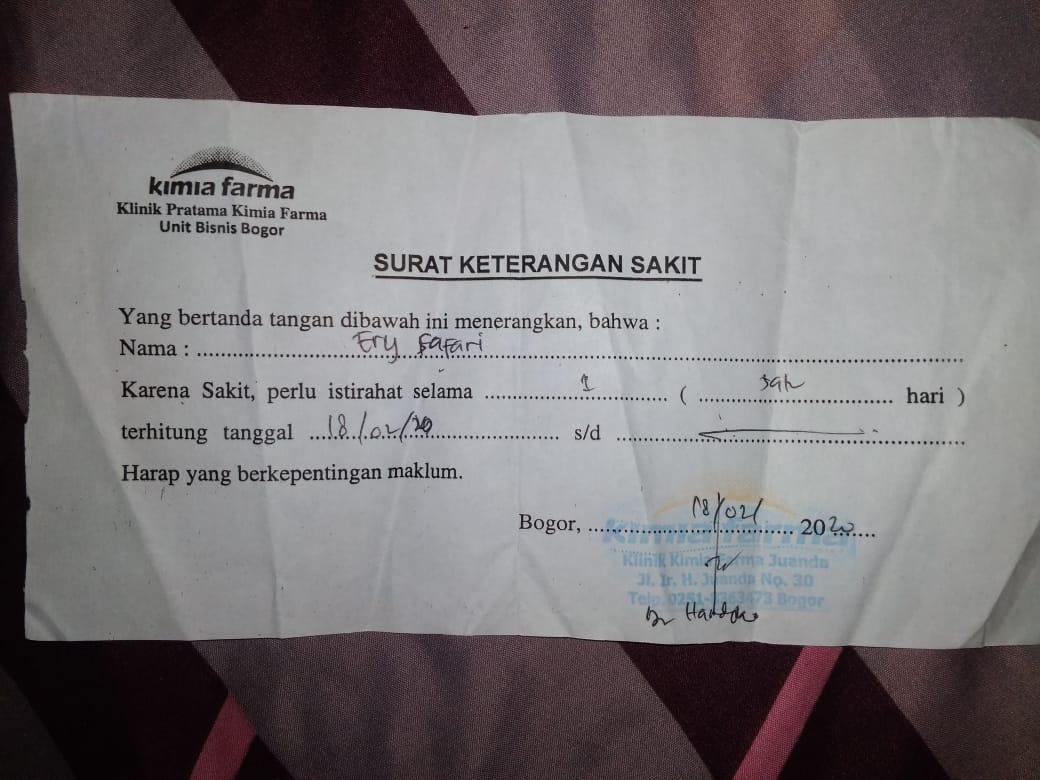 kimia farma
Klinik Pratama Kimia Farma
Unit Bisnis Bogor
SURAT KETERANGAN SAKIT
Yang bertanda tangan dibawah ini menerangkan, bahwa :
Nama : Ery Safari
Karena Sakit, perlu istirahat selama 1 ( hari )
terhitung tanggal 18/02/20 s/d
Harap yang berkepentingan maklum.
Bogor, 18/02/ 2020
kimia farma
Klinik Kimia Farma Juanda
Jl. Ir. H. Juanda No. 30
Telp. 0251- Bogor
Dr